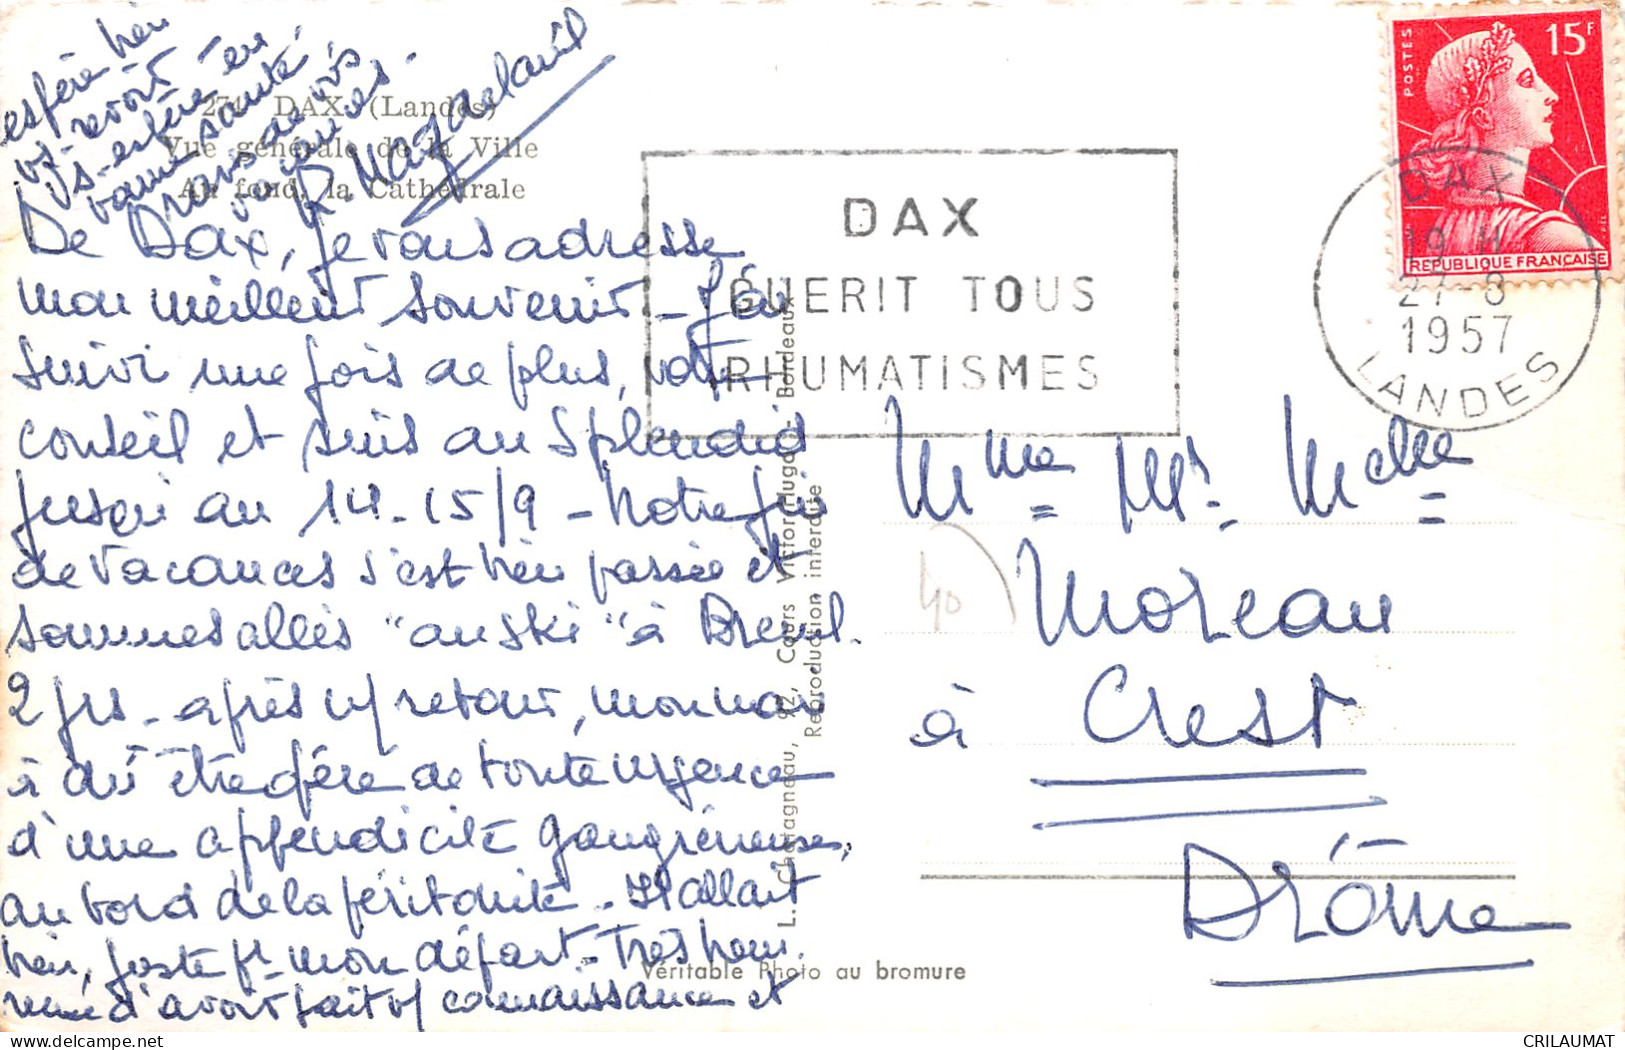 274 DAX (Landes)
Vue générale de la Ville
Au fond, la Cathédrale
De Dax, je vous adresse
mon meilleur souvenir - J'ai
suivi une fois de plus, votre
conseil et suis au Splendid
jusqu'au 14-15/9 - Notre fin
de vacances s'est bien passée et
sommes allés "au ski" à Breuil.
2 jrs - après n/ retour, mon mari
a dû être opéré de toute urgence
d'une appendicite gangréneuse,
au bord de la péritonite - Il allait
bien, juste pr mon départ - Très heu-
reuse d'avoir fait v/ connaissance et
espère bien
vs revoir -
Vs espère en
bonne santé,
vacances.
DAX
GUERIT TOUS
RHUMATISMES
POSTES
15F
REPUBLIQUE FRANÇAISE
DAX
19 H
27-8
1957
LANDES
Mme Mr. Melle
Moreau
à Crest
Drôme
40
L. Chatagneau, 92, Cours Victor-Hugo, Bordeaux
Reproduction interdite
Véritable Photo au bromure
CRILAUMAT